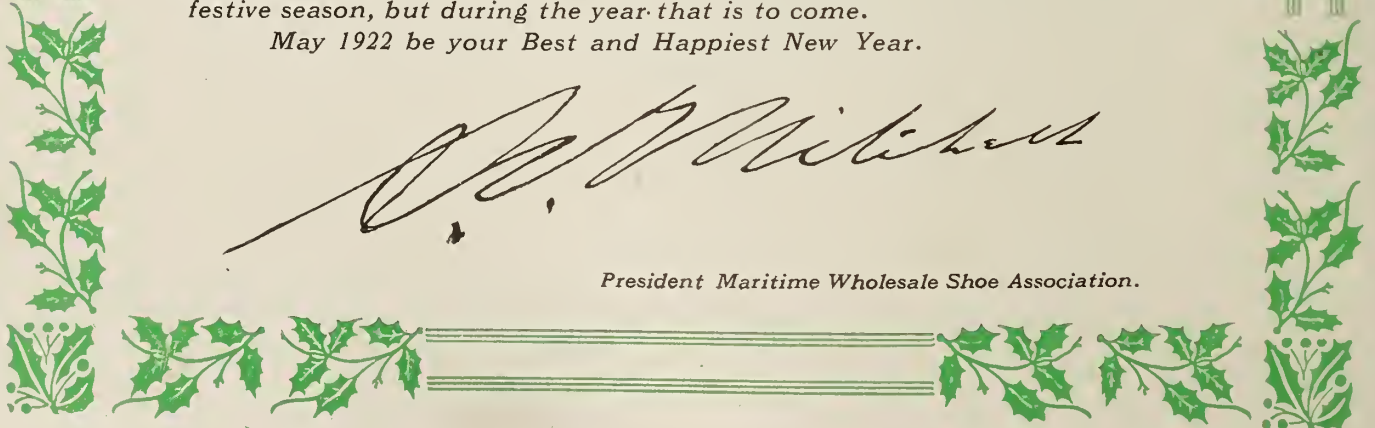 festive season, but during the year that is to come.
May 1922 be your Best and Happiest New Year.
Mitchell
President Maritime Wholesale Shoe Association.